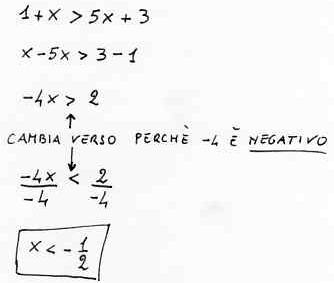 1+x > 5x+3
x-5x > 3-1
-4x > 2
CAMBIA VERSO PERCHÈ -4 È NEGATIVO
-4x/-4 < 2/-4
x < -1/2